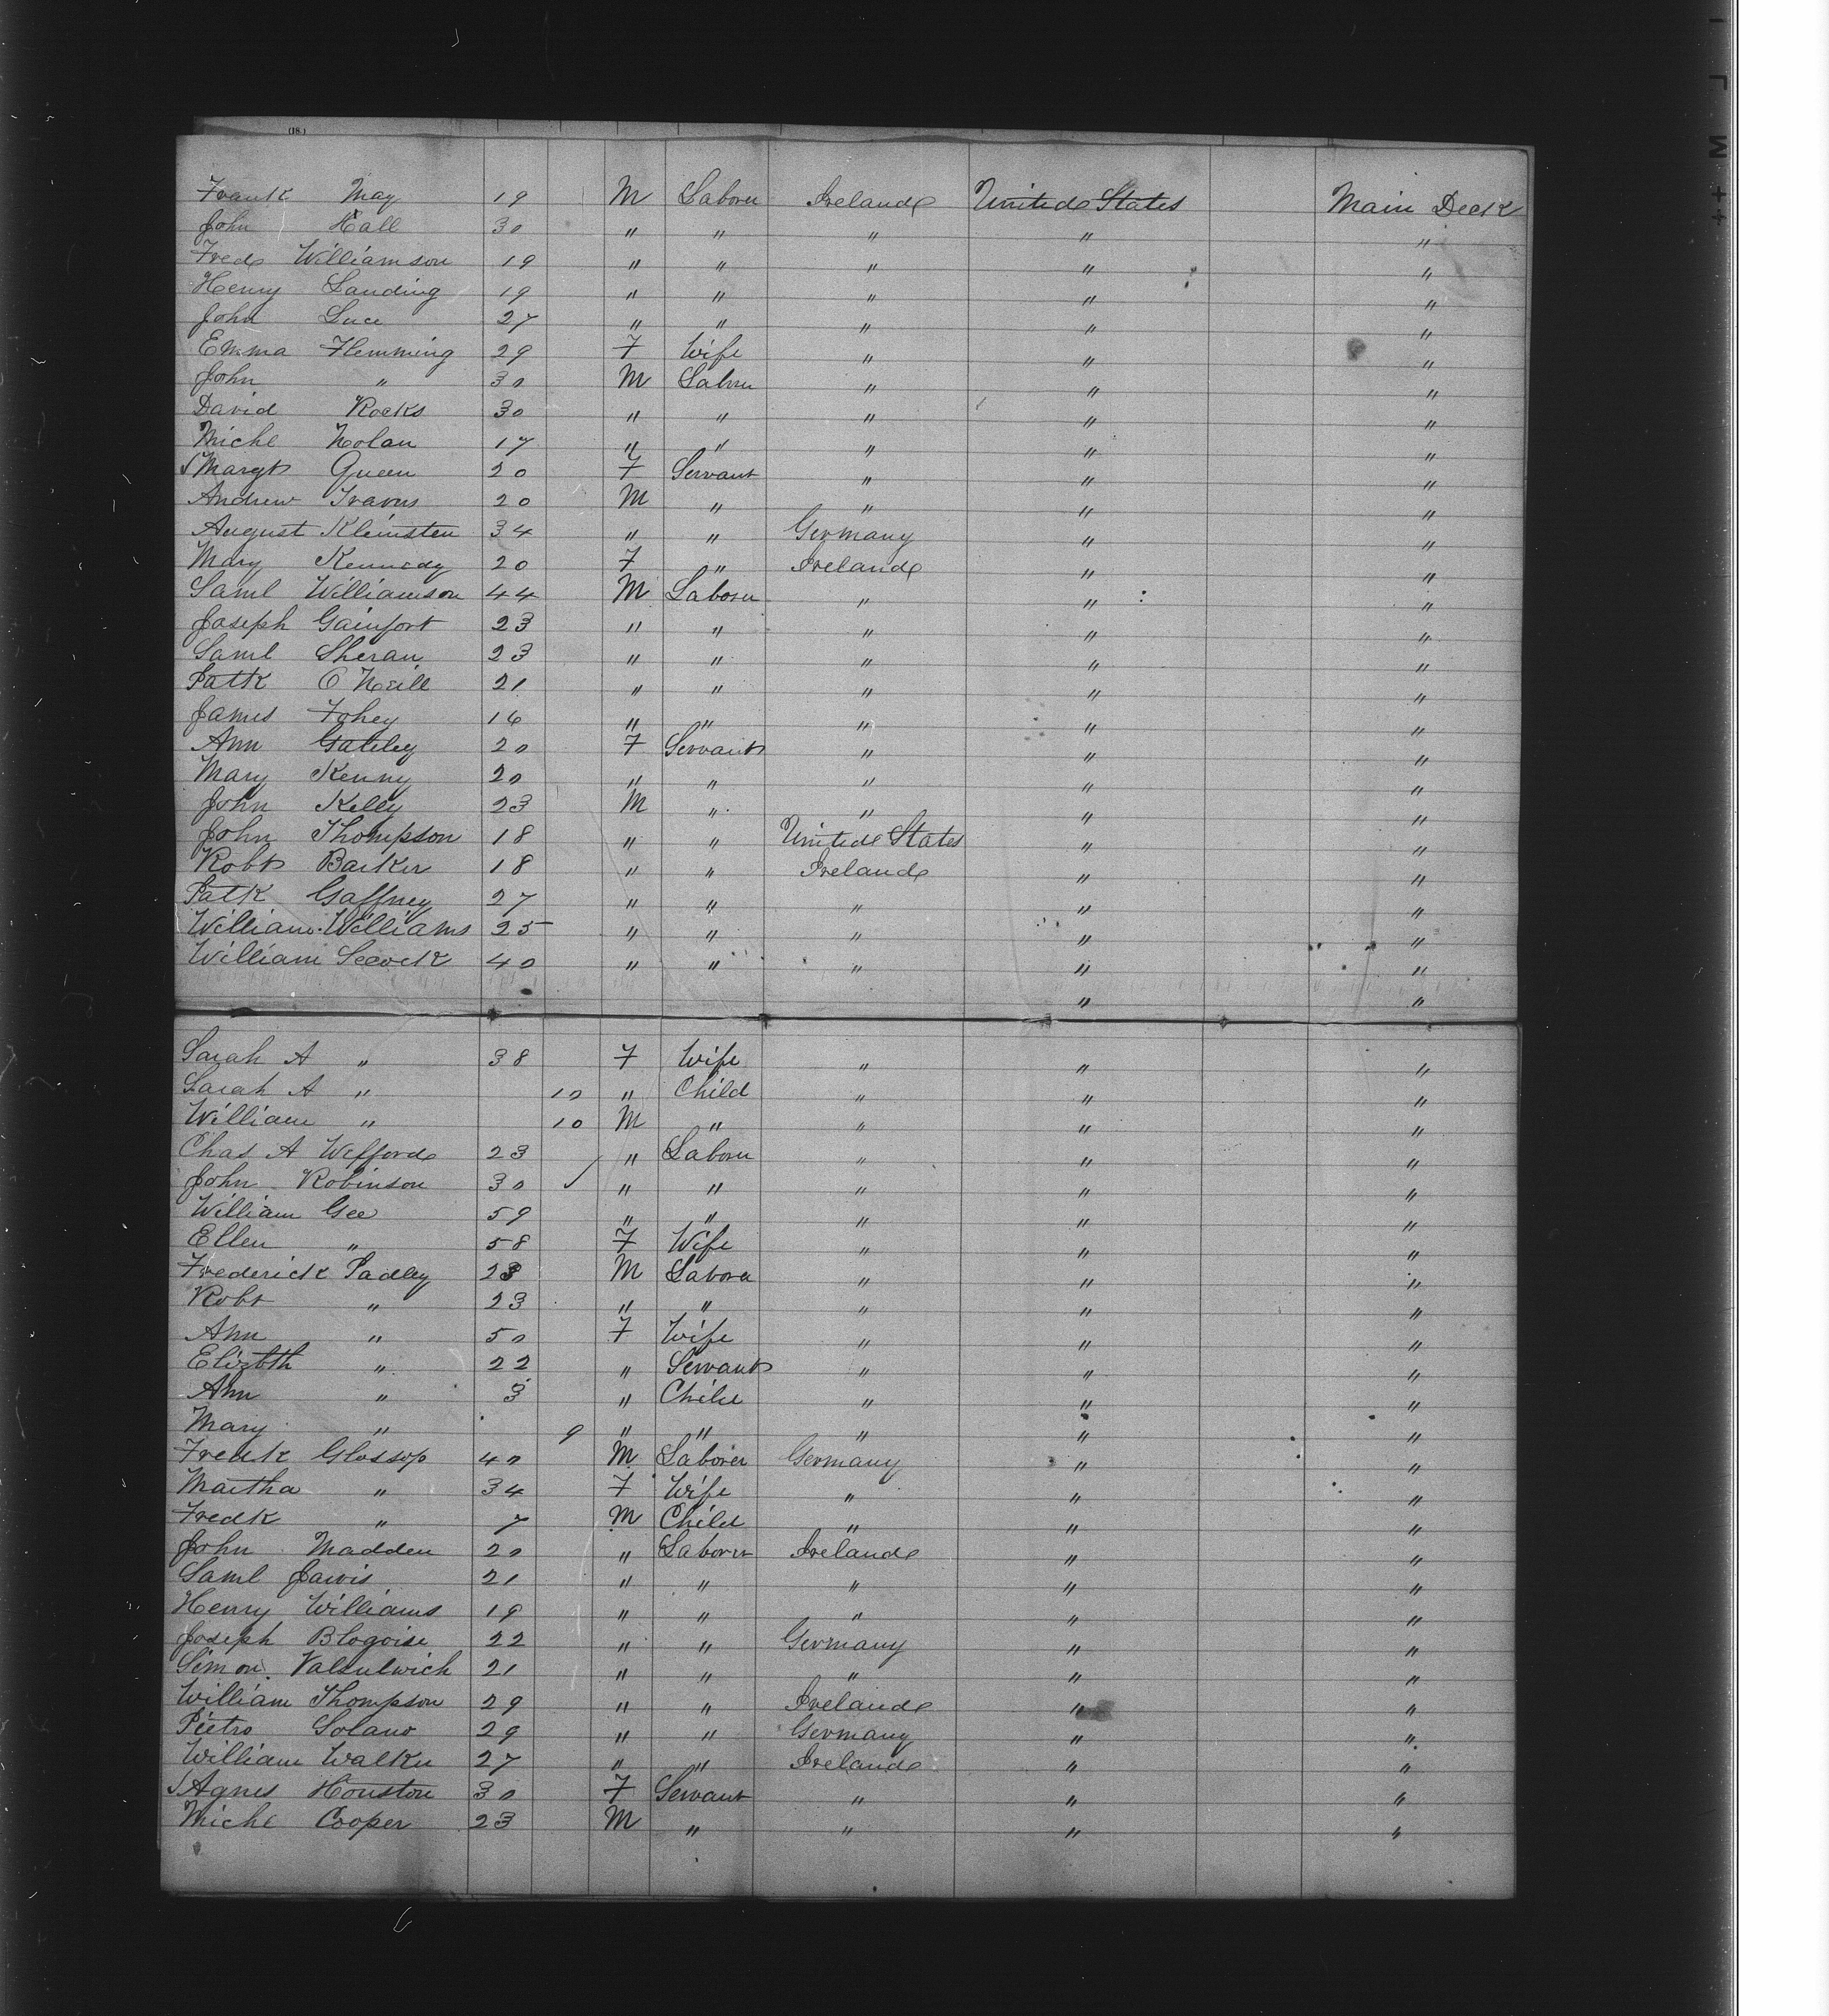 (18.)
Frank May 19 M Laborer Ireland United States Main Deck
John Hall 30 " " " " "
Fred Williamson 19 " " " " "
Henry Landing 19 " " " " "
John Luce 27 " " " " "
Emma Flemming 29 F Wife " " "
John " 30 M Laborer " " "
David Rocks 30 " " " " "
Michl Nolan 17 " " " " "
Margt Queen 20 F Servant " " "
Andrew Travers 20 M " " " "
August Kleinsten 34 " " Germany " "
Mary Kennedy 20 F " Ireland " "
Saml Williamson 44 M Laborer " " "
Joseph Gainfort 23 " " " " "
Saml Sheran 23 " " " " "
Patk O'Neill 21 " " " " "
James Fohey 16 " " " " "
Ann Gateley 20 F Servant " " "
Mary Kenny 20 " " " " "
John Kelly 23 M " " " "
John Thompson 18 " " United States " "
Robt Barker 18 " " Ireland " "
Patk Gaffney 27 " " " " "
William Williams 25 " " " " "
William Secock 40 " " " " "
" "
Sarah A " 38 F Wife " " "
Sarah A " 10 " Child " " "
William " 10 M " " " "
Chas A Wefford 23 " Laborer " " "
John Robinson 30 " " " " "
William Gee 59 " " " " "
Ellen " 58 F Wife " " "
Frederick Padley 23 M Laborer " " "
Robt " 23 " " " " "
Ann " 50 F Wife " " "
Elizbth " 22 " Servant " " "
Ann " 3 " Child " " "
Mary " 9 " " " " "
Fredk Glossop 40 M Laborer Germany " "
Martha " 34 F Wife " " "
Fredk " 7 M Child " " "
John Madden 20 " Laborer Ireland " "
Saml Jarvis 21 " " " " "
Henry Williams 19 " " " " "
Joseph Blogoise 22 " " Germany " "
Simon Valsulwich 21 " " " " "
William Thompson 29 " " Ireland " "
Pietro Solano 29 " " Germany " "
William Walker 27 " " Ireland " "
Agnes Houston 30 F Servant " " "
Michl Cooper 23 M " " " "